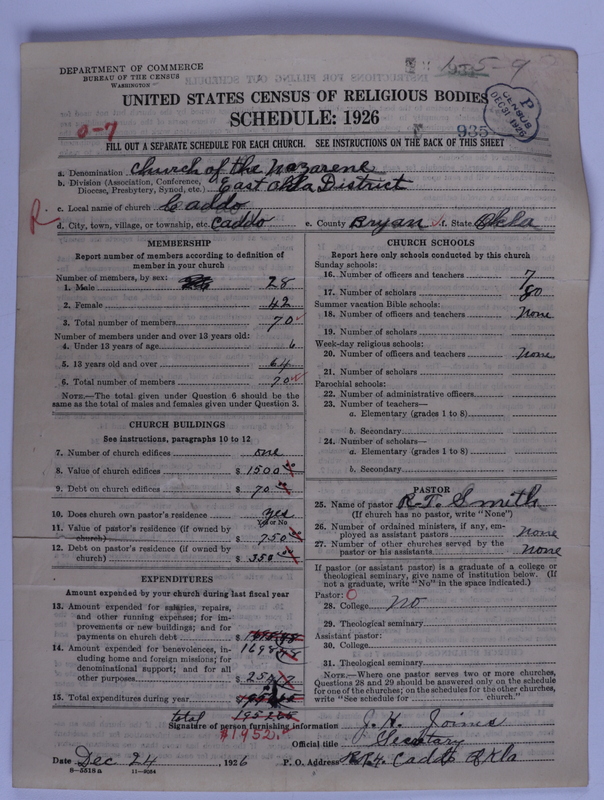 DEPARTMENT OF COMMERCE
BUREAU OF THE CENSUS
WASHINGTON
UNITED STATES CENSUS OF RELIGIOUS BODIES
SCHEDULE: 1926
0-7
935
CENSUS
DEC 31 1926
P
FILL OUT A SEPARATE SCHEDULE FOR EACH CHURCH. SEE INSTRUCTIONS ON THE BACK OF THIS SHEET
a. Denomination Church of the Nazarene
b. Division (Association, Conference, Diocese, Presbytery, Synod, etc.) East Okla District
c. Local name of church Caddo
R
d. City, town, village, or township, etc. Caddo e. County Bryan f. State Okla
MEMBERSHIP
Report number of members according to definition of
member in your church
Number of members, by sex:
1. Male 28
2. Female 42
3. Total number of members 70
Number of members under and over 13 years old:
4. Under 13 years of age 6
5. 13 years old and over 64
6. Total number of members 70
NOTE.—The total given under Question 6 should be
same as the total of males and females given under Question 3.
CHURCH BUILDINGS
See instructions, paragraphs 10 to 12
7. Number of church edifices one
8. Value of church edifices $ 1500 00
9. Debt on church edifices $ 70 00
10. Does church own pastor's residence yes
Yes or No
11. Value of pastor's residence (if owned by
church) $ 750 00
12. Debt on pastor's residence (if owned by
church) $ 350 00
EXPENDITURES
Amount expended by your church during last fiscal year
13. Amount expended for salaries, repairs,
and other running expenses; for im-
provements or new buildings; and for
payments on church debt $
1698
14. Amount expended for benevolences, in-
cluding home and foreign missions; for
denominational support; and for all
other purposes $ 254
15. Total expenditures during year $
total
$1952.
CHURCH SCHOOLS
Report here only schools conducted by this church
Sunday schools:
16. Number of officers and teachers 7
17. Number of scholars 80
Summer vacation Bible schools:
18. Number of officers and teachers None
19. Number of scholars
Week-day religious schools:
20. Number of officers and teachers None
21. Number of scholars
Parochial schools:
22. Number of administrative officers
23. Number of teachers—
a. Elementary (grades 1 to 8)
b. Secondary
24. Number of scholars—
a. Elementary (grades 1 to 8)
b. Secondary
PASTOR
25. Name of pastor R.T. Smith
(If church has no pastor, write "None")
26. Number of ordained ministers, if any, em-
ployed as assistant pastors None
27. Number of other churches served by the
pastor or his assistants None
If pastor (or assistant pastor) is a graduate of a college or
theological seminary, give name of institution below. (If
not a graduate, write "No" in the space indicated.)
Pastor: 0
28. College No
29. Theological seminary
Assistant pastor:
30. College
31. Theological seminary
NOTE.—Where one pastor serves two or more churches,
Questions 28 and 29 should be answered only on the schedule
for one of the churches; on the schedules for the other churches,
write "See schedule for ---- church."
Signature of person furnishing information J. H. Joines
Official title Secretary
Date Dec 24, 1926 P. O. Address Caddo Okla
8—5518 a 11—9084